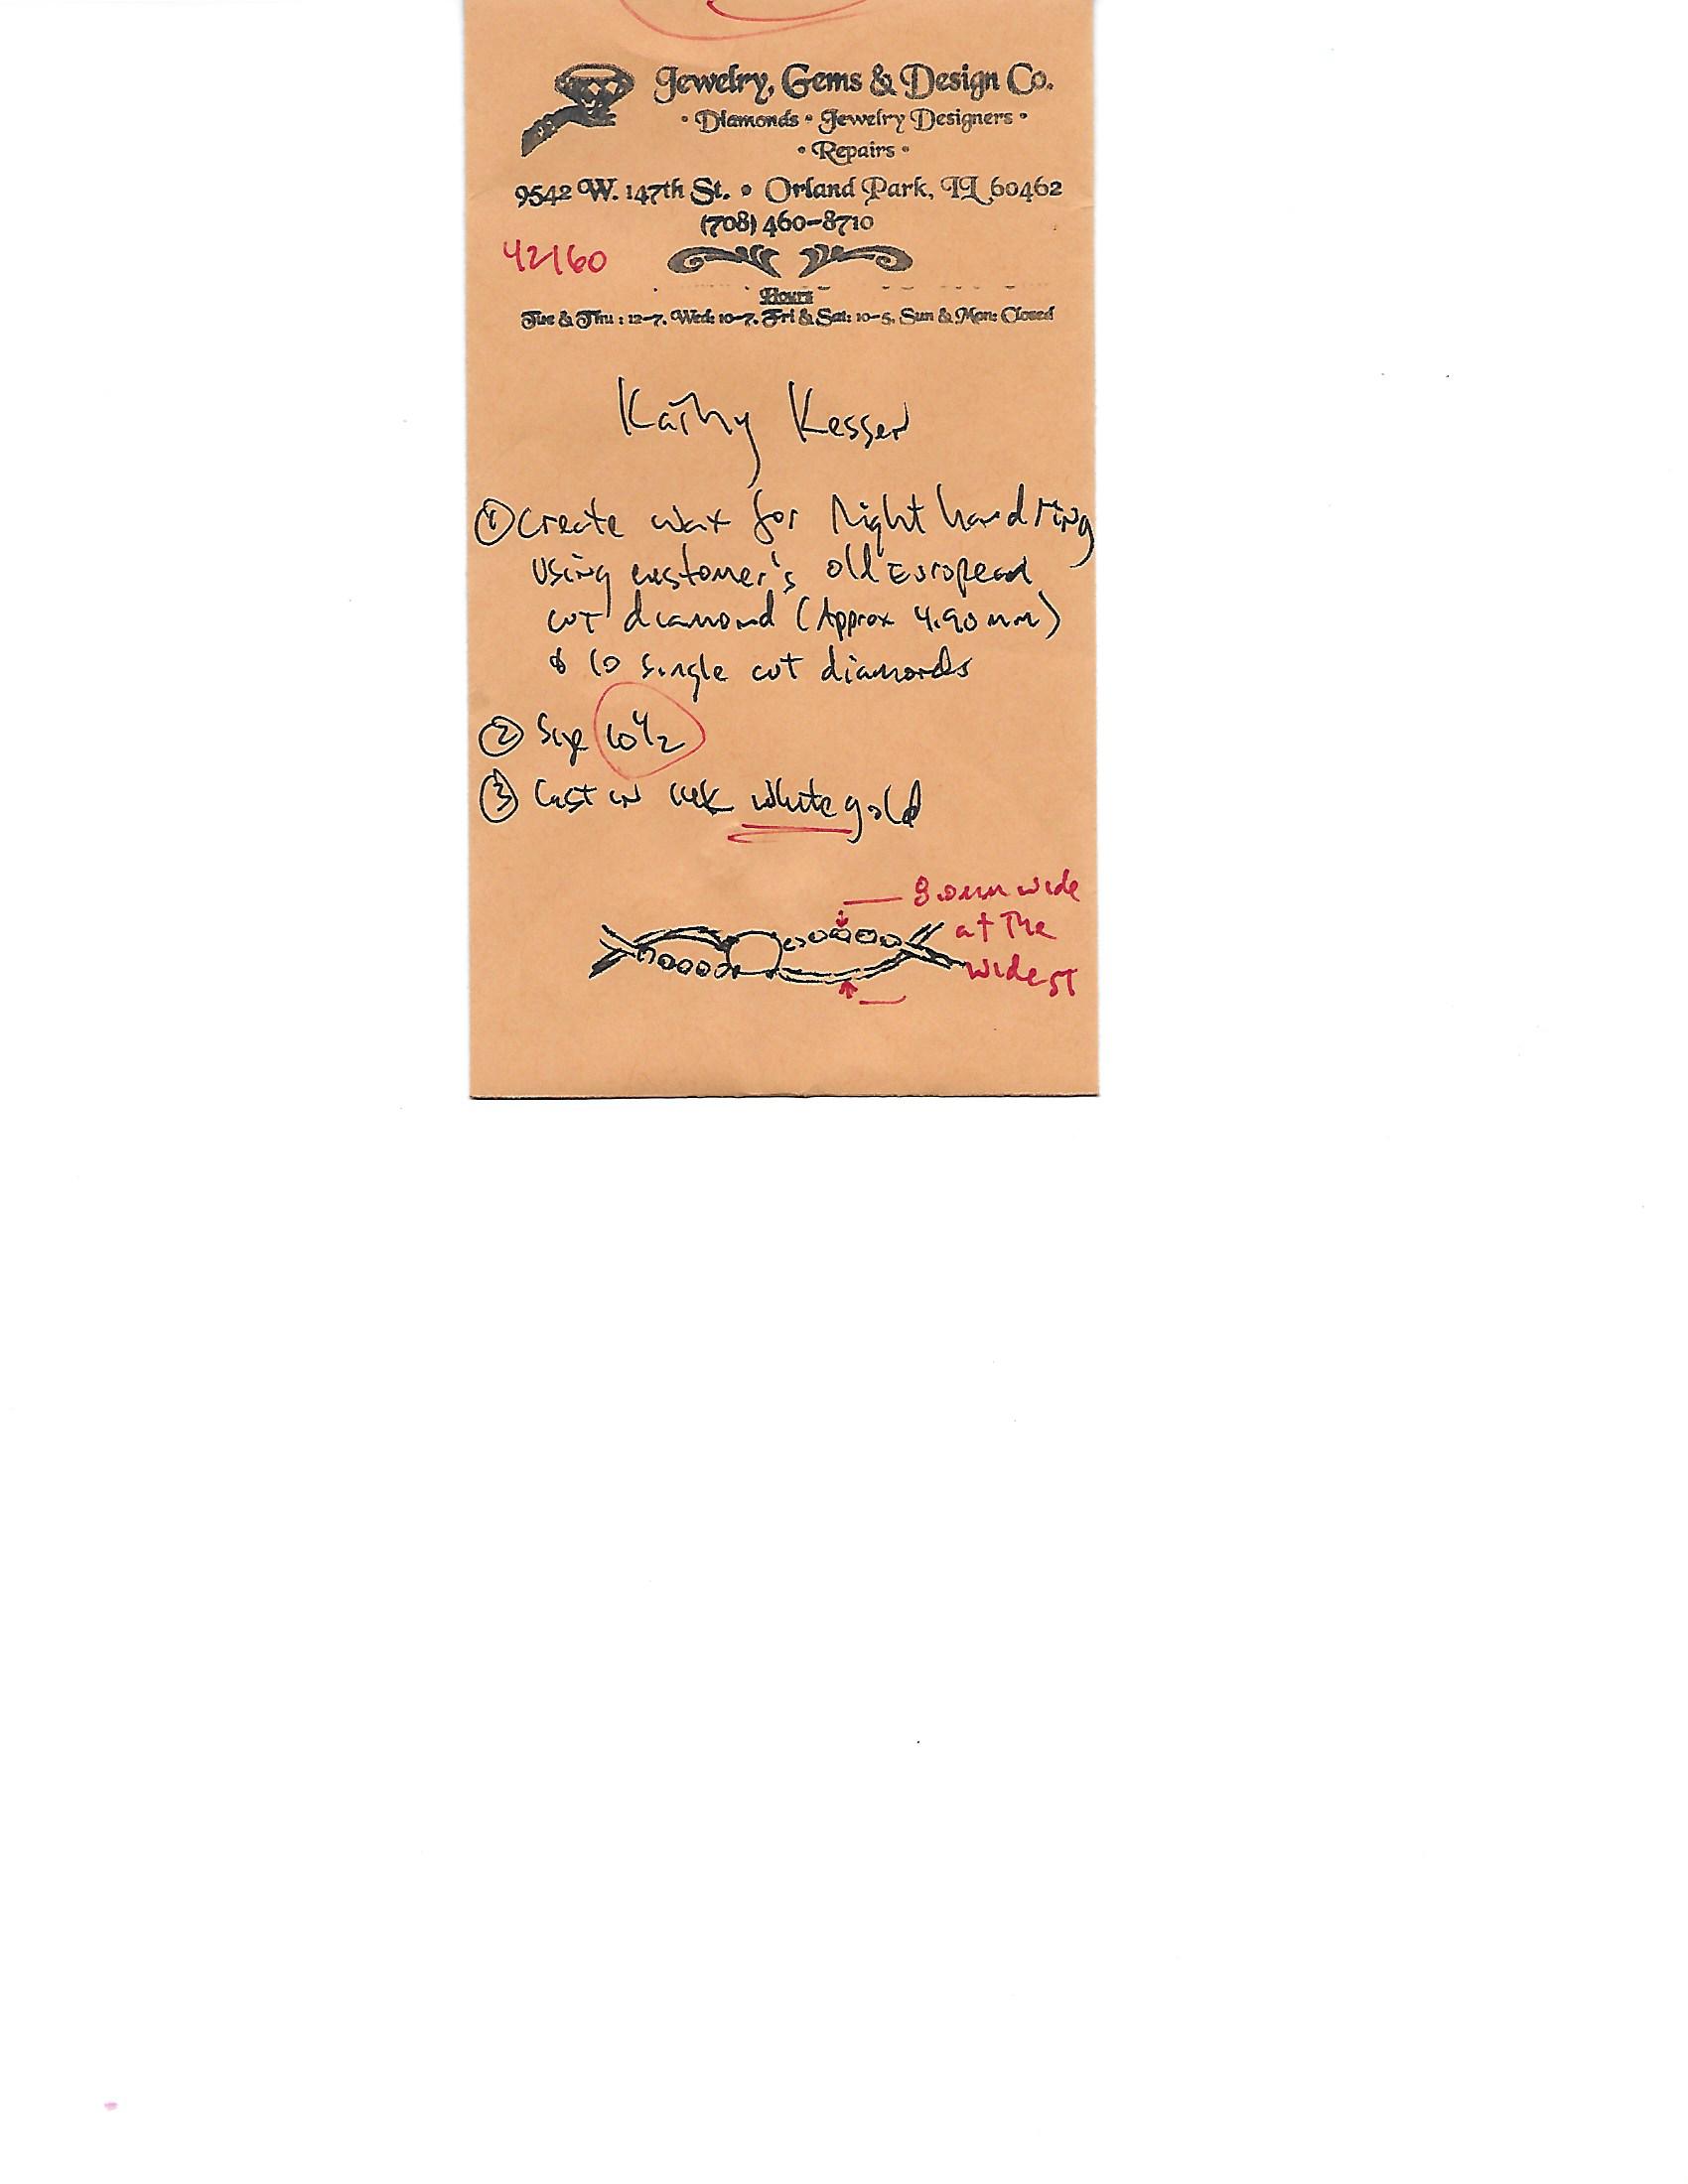 Jewelry, Gems & Design Co.
• Diamonds • Jewelry Designers •
• Repairs •
9542 W. 147th St. • Orland Park, IL 60462
(708) 460-8710
42160
Hours
Tue & Thu : 12-7, Wed: 10-7, Fri & Sat: 10-5, Sun & Mon: Closed
Kathy Kesser
① Create wax for Right hand ring
using customer's old European
cut diamond (Approx 4.90 mm)
& 10 single cut diamonds
② Size 10 1/2
③ Cast in 14K white gold
8.0mm wide
at The
widest